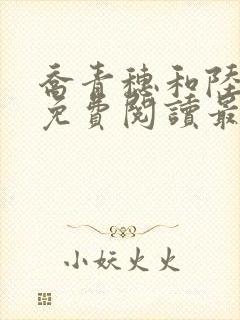 喬青穗和陸
免費閱讀最
小妖火火